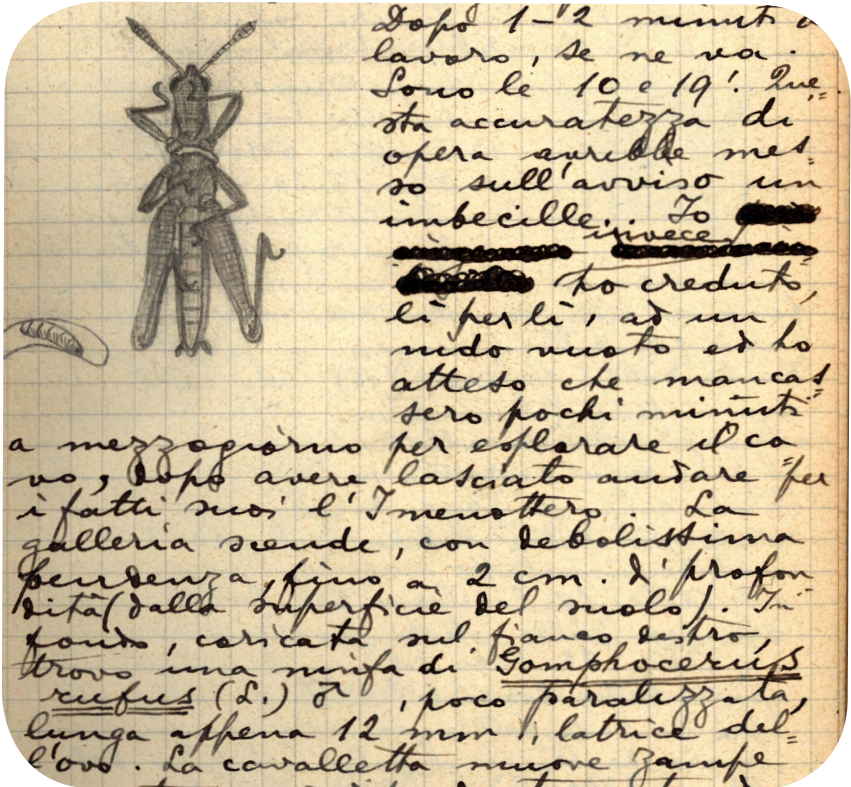 Dopo 1-2 minuti
lavoro, se ne va.
Sono le 10 e 19'. Que=
sta accuratezza di
opera avrebbe mes=
so sull'avviso un
imbecille. Io
invece
ho creduto,
lì per lì, ad un
nido vuoto ed ho
atteso che mancas=
sero pochi minuti
a mezzogiorno per esplorare il ca
vo, dopo avere lasciato andare per
i fatti suoi l'Imenottero. La
galleria scende, con debolissima
pendenza, fino a 2 cm. di profon
dità (dalla superficie del suolo). In
fondo, coricata sul fianco destro,
trovo una ninfa di Gomphocerus
rufus (L.) ♂, poco paralizzata,
lunga appena 12 mm, latrice del=
l'ovo. La cavalletta muove zampe